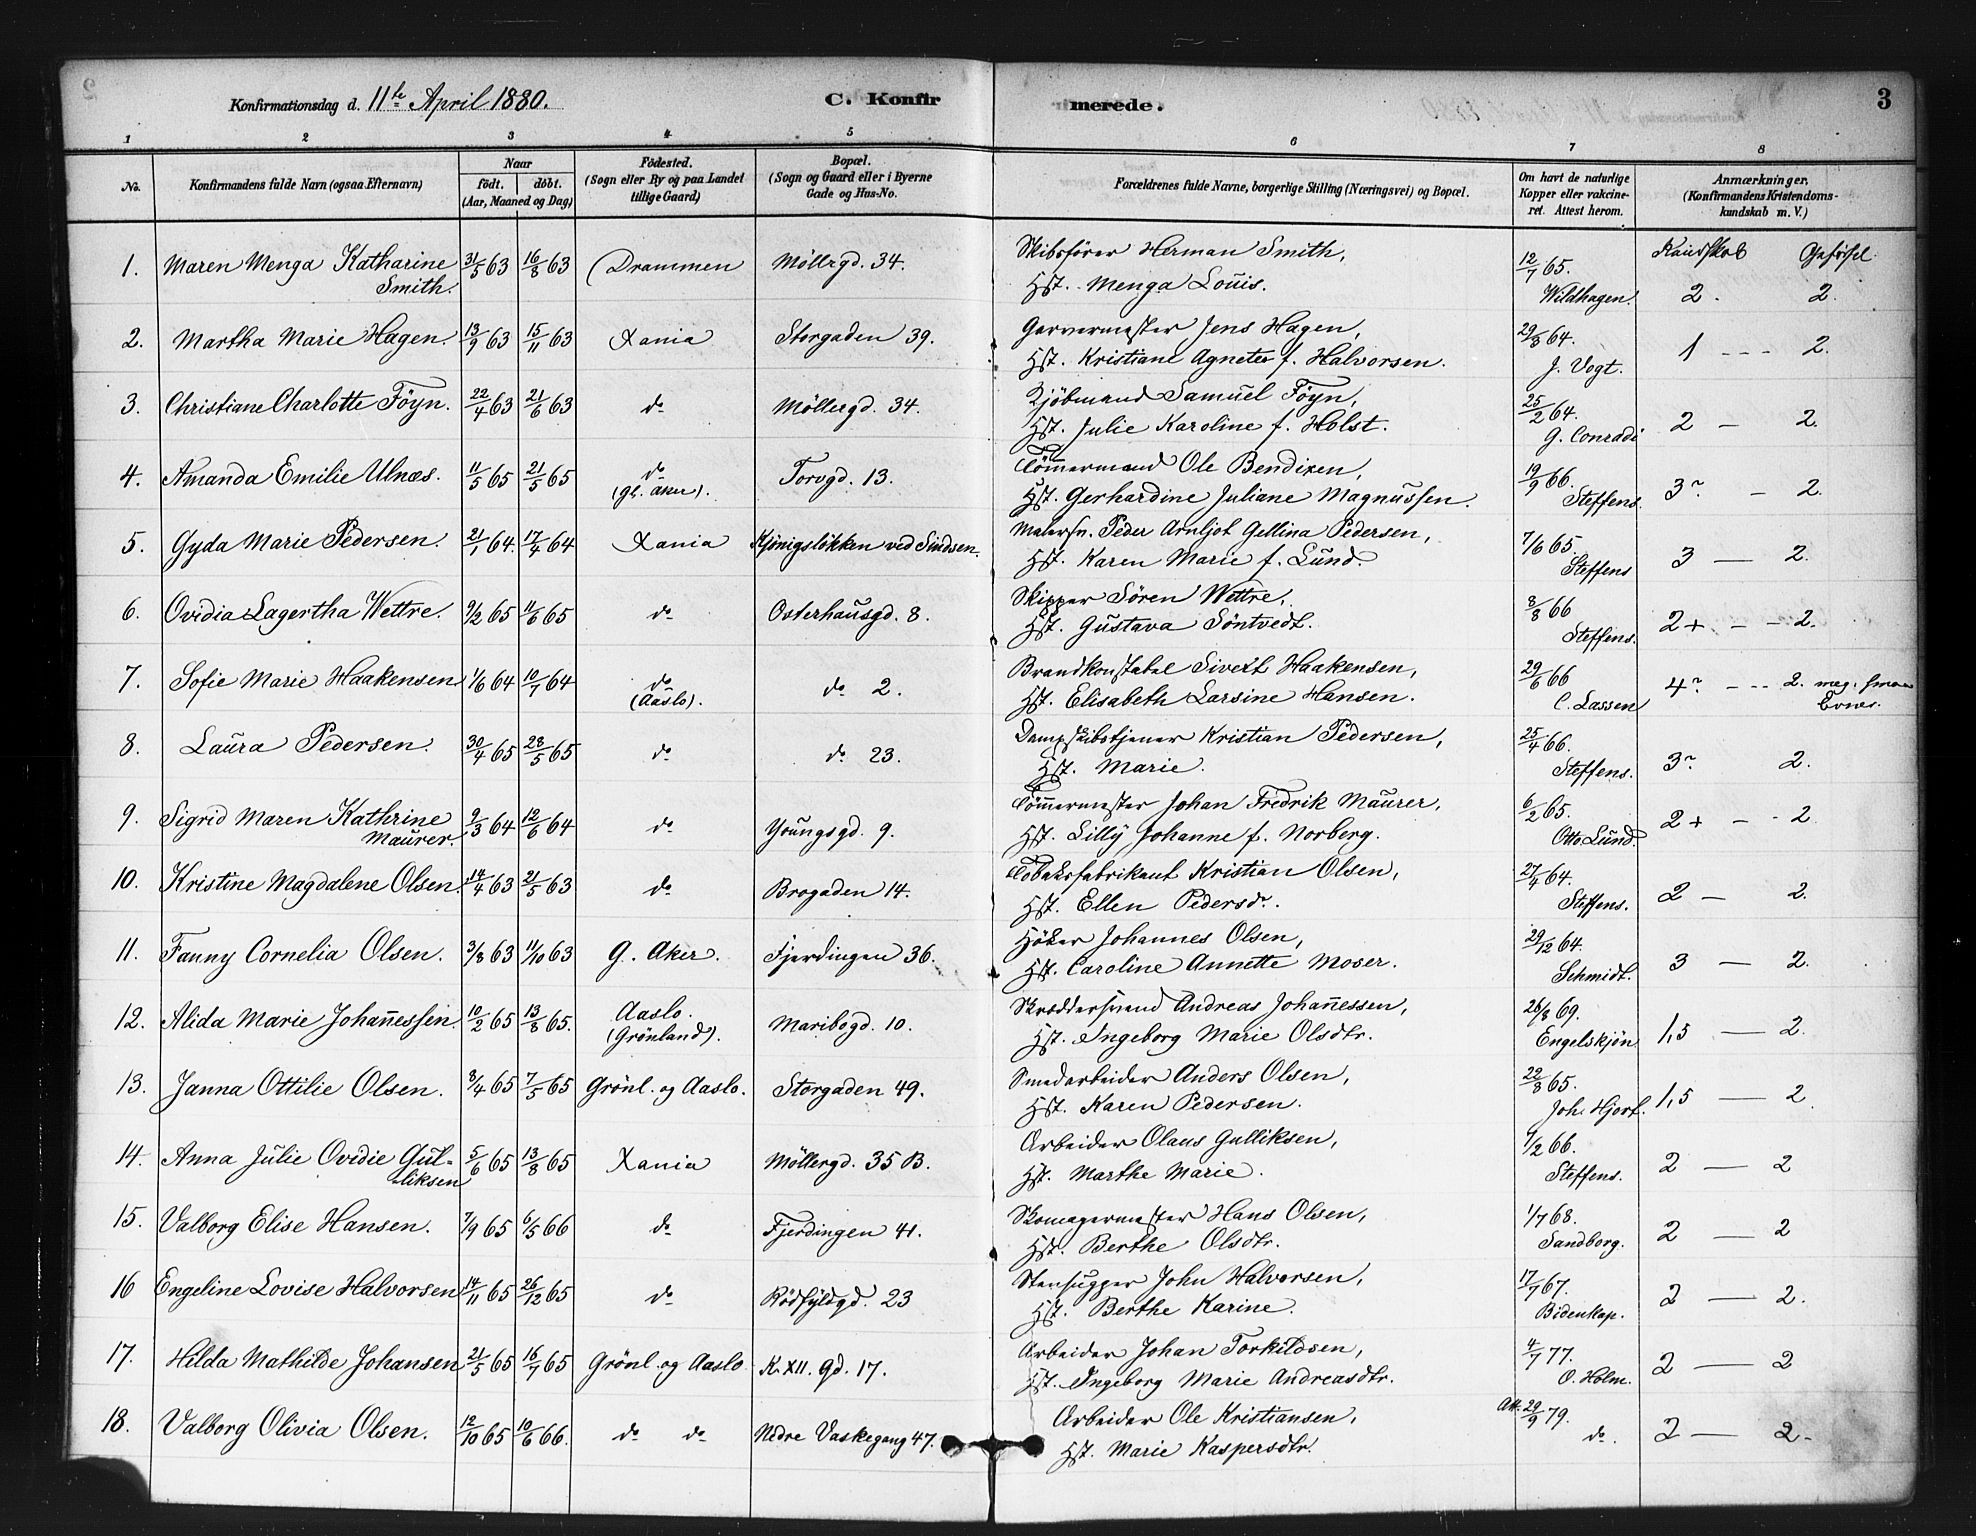 Konfirmationsdag d. 11te April 1880.
C. Konfirmerede.
3
1 2 3 4 5 6 7 8
No.
Konfirmandens fulde Navn (ogsaa Efternavn)
Naar
födt. döbt.
(Aar, Maaned og Dag)
Födested.
(Sogn eller By og paa Landet
tillige Gaard)
Bopæl.
(Sogn og Gaard eller i Byerne
Gade og Hus-No.
Forældrenes fulde Navne, borgerlige Stilling (Næringsvei) og Bopæl.
Om havt de naturlige
Kopper eller vakcine-
ret. Attest herom.
Anmærkninger,
(Konfirmandens Kristendoms-
kundskab m. V.)
Kundskab Opförsel
1. Maren Menga Katharine 31/5 63 16/8 63 Drammen Möllergd. 34. Skibsförer Herman Smith, 12/7 65.
Smith. Hst. Menga Louis. Wildhagen. 2. 2.
2. Martha Marie Hagen. 13/9 63 15/11 63 Xania Storgaden 39. Garvermester Jens Hagen, 29/3 64. 1 --- 2.
Hst. Kristiane Agnete f. Halvorsen. J. Vogt.
3. Christiane Charlotte Föyn. 22/4 63 21/6 63 do Möllergd. 34. Kjöbmand Samuel Föyn, 25/2 64. 2 — 2.
Hst. Julie Karoline f. Holst. G. Conradi
4. Amanda Emilie Ulnæs. 11/5 65 21/5 65 do Torvgd. 13. Tömmermand Ole Bendixen, 19/9 66.
(gl. Aker). Hst. Gerhardine Juliane Magnussen. Steffens. 3 — 2.
5. Gyda Marie Pedersen. 21/1 64. 17/4 64 Xania Kjönigslökken ved Sindsen. Malersv. Peder Arnljot Gellina Pedersen, 7/6 65.
Hst. Karen Marie f. Lund. Steffens 3 — 2.
6. Ovidia Lagertha Wettre. 9/2 65 11/6 65 do Osterhausgd. 8. Skipper Sören Wettre, 8/8 66
Hst. Gustava Söntvedt. Steffens. 2+ - - 2.
7. Sofie Marie Haakensen 1/6 64 10/7 64 do do 2. Brandkonstabel Sivert Haakensen, 29/6 66
(Aaslo). Hst. Elisabeth Larsine Hansen. C. Lassen 4 --- 2. meg. smaa
Evner.
8. Laura Pedersen. 30/4 65 28/5 65 do do 23. Dampskibstjener Kristian Pedersen, 25/4 66.
Hst. Marie. Steffens. 3 2.
9. Sigrid Maren Kathrine 9/3 64 12/6 64 do Youngsgd. 9. Tömmermester Johan Fredrik Maurer, 6/2 65.
Maurer. Hst. Lilly Johanne f. Norberg. Otto Lund. 2+ - - 2.
10. Kristine Magdalene Olsen. 14/4 63 21/5 63 do Brogaden 14. Tobaksfabrikant Kristian Olsen, 27/4 64.
Hst. Ellen Pedersdr. Steffens. 2 — 2.
11. Fanny Cornelia Olsen. 3/8 63 11/10 63 G. Aker. Fjerdingen 36. Höker Johannes Olsen, 29/12 64.
Hst. Caroline Annette Moser. Schmidt. 3 — 2.
12. Alida Marie Johannessen. 10/2 65 13/8 65. Aaslo. Maribogd. 10. Skræddersvend Andreas Johannessen, 26/8 69.
(Grönland). Hst. Ingeborg Marie Olsdtr. Engelskjön 1,5 — 2.
13. Janna Ottilie Olsen. 8/4 65 7/5 65 Grönl. og Aaslo. Storgaden 49. Smedarbeider Anders Olsen, 22/8 65.
Hst. Karen Pedersen. Joh. Hjort. 1,5 — 2
14. Anna Julie Ovidie Gul- 5/6 65 13/8 65 Xania Möllergd. 35 B. Arbeider Olaus Gulliksen, 1/2 66.
liksen Hst. Marthe Marie. Steffens. 2 — 2
15. Valborg Elise Hansen. 7/9 65 6/5 66 do Fjerdingen 41. Skomagermester Hans Olsen, 1/7 68.
Hst. Berthe Olsdtr. Sandborg. 2 — 2
16 Engeline Lovise Halvorsen 14/11 65 26/12 65 do Rödfyldgd. 23 Stenhugger John Halvorsen, 17/7 67.
Hst. Berthe Karine. Bidenkap. 2 — 2.
17. Hilda Mathilde Johansen 21/5 65 16/7 65 Grönl. og Aaslo K. XII. Gd. 17. Arbeider Johan Torkildsen, 4/7 77.
Hst. Ingeborg Marie Andreasdtr. O. Holm. 2 — 2
18. Valborg Olivia Olsen. 12/10 65 10/6 66. do do Nedre Vaskegang 47. Arbeider Ole Kristiansen, Att. 29/9 79.
Hst. Marie Kaspersdtr. do. 2 — 2-